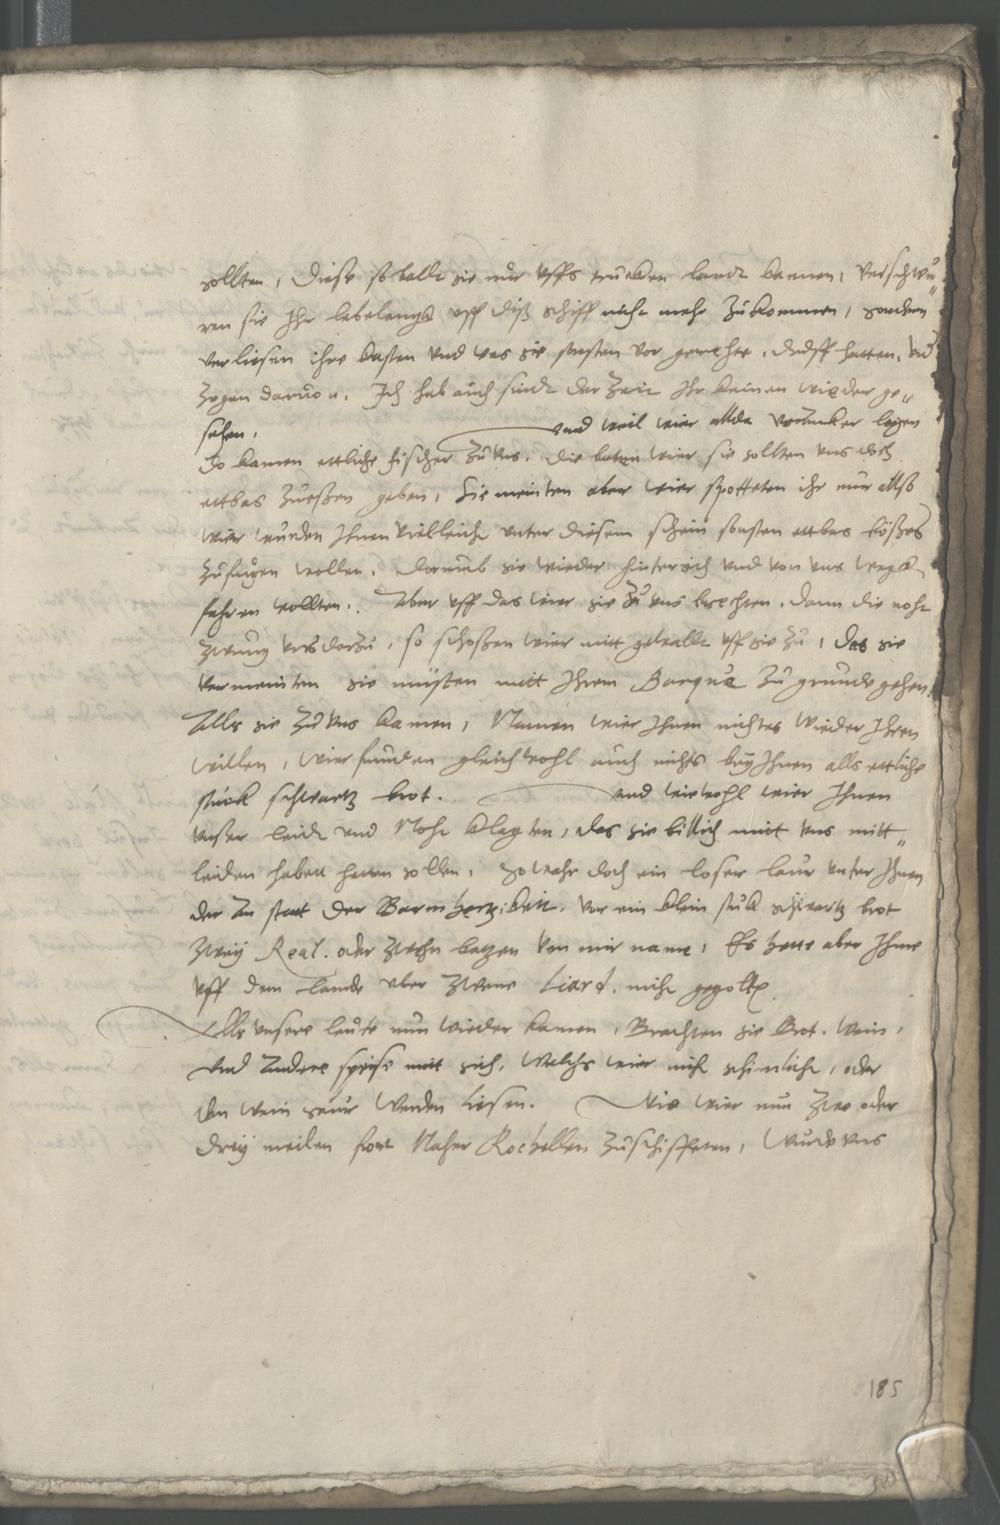 sollten, Diese so baldt sie nur uffs trucken landt kamen, verschwu„
ren sie Ihr lebelangk uff diß schiff nicht mehr zukommen, sondern
verliesen ihre kasten und was sie sonsten vor gerethe, druff hatten, und
zogen daruon. Ich hab auch sindt der Zeit Ihr keinen wieder ge„
sehen. und weil wier allda vor Ancker lagen
do kamen ettliche fischer zu uns, die baten wier sie sollten uns doch
ettbas zueßen geben, Sie meinten aber wier spotteten ihr nur allso
wier wurden Ihnen villeicht unter diesem schein sonsten ettbas bößes
zufugen wollen, dorumb sie wieder hintersich und von uns wegk
fahren wollten. Aber uff das wier sie zu uns brechten, dann die noht
zwung uns darzu, so schoßen wier mitt gewallt uff sie zu, das sie
vermeinten sie müsten mitt Ihrem Barqua zu grunde gehen.
Alls sie zu uns kamen, Namen wier Ihnen nichtes wieder Ihren
willen, wier funden gleichwohl auch nichts bey Ihnen alls ettliche
stuck schwartz brot. und wiewohl wier Ihnen
unßer leidt und Noht klagten, das sie billich mitt uns mitt„
leiden haben hetten sollen, so wahr doch ein loser laur unter Ihnen
der An statt der Barmhertzikeit, vor ein klein stuk schwartz brot
zwey Real. oder zwehn batzen von mir name, Es hette aber Ihme
uff dem lande uber zwene Liard. nicht gegolten
Alls unsere leute nun wieder kamen, Brachten sie Brot. Wein,
und Andere speise mitt sich, Welchs wier nicht schimlicht, oder
den wein saur werden liesen. Wie wier nun zwe oder
drey meilen fort Naher Rochellen zuschifften, wurde uns
185